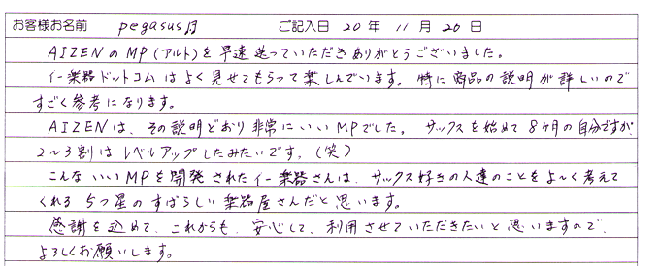 お客様お名前 pegasus月 ご記入日 20 年 11 月 20 日
AIZENのMP(アルト)を早速送っていただきありがとうございました。
イー楽器ドットコムはよく見せてもらって楽しんでいます。特に商品の説明が詳しいので
すごく参考になります。
AIZENは、その説明どおり非常にいいMPでした。サックスを始めて8ヶ月の自分ですが、
2〜3割はレベルアップしたみたいです。(笑)
こんないいMPを開発されたイー楽器さんは、サックス好きの人達のことをよ〜く考えて
くれる5つ星のすばらしい楽器屋さんだと思います。
感謝を込めて、これからも、安心して、利用させていただきたいと思いますので、
よろしくお願いします。